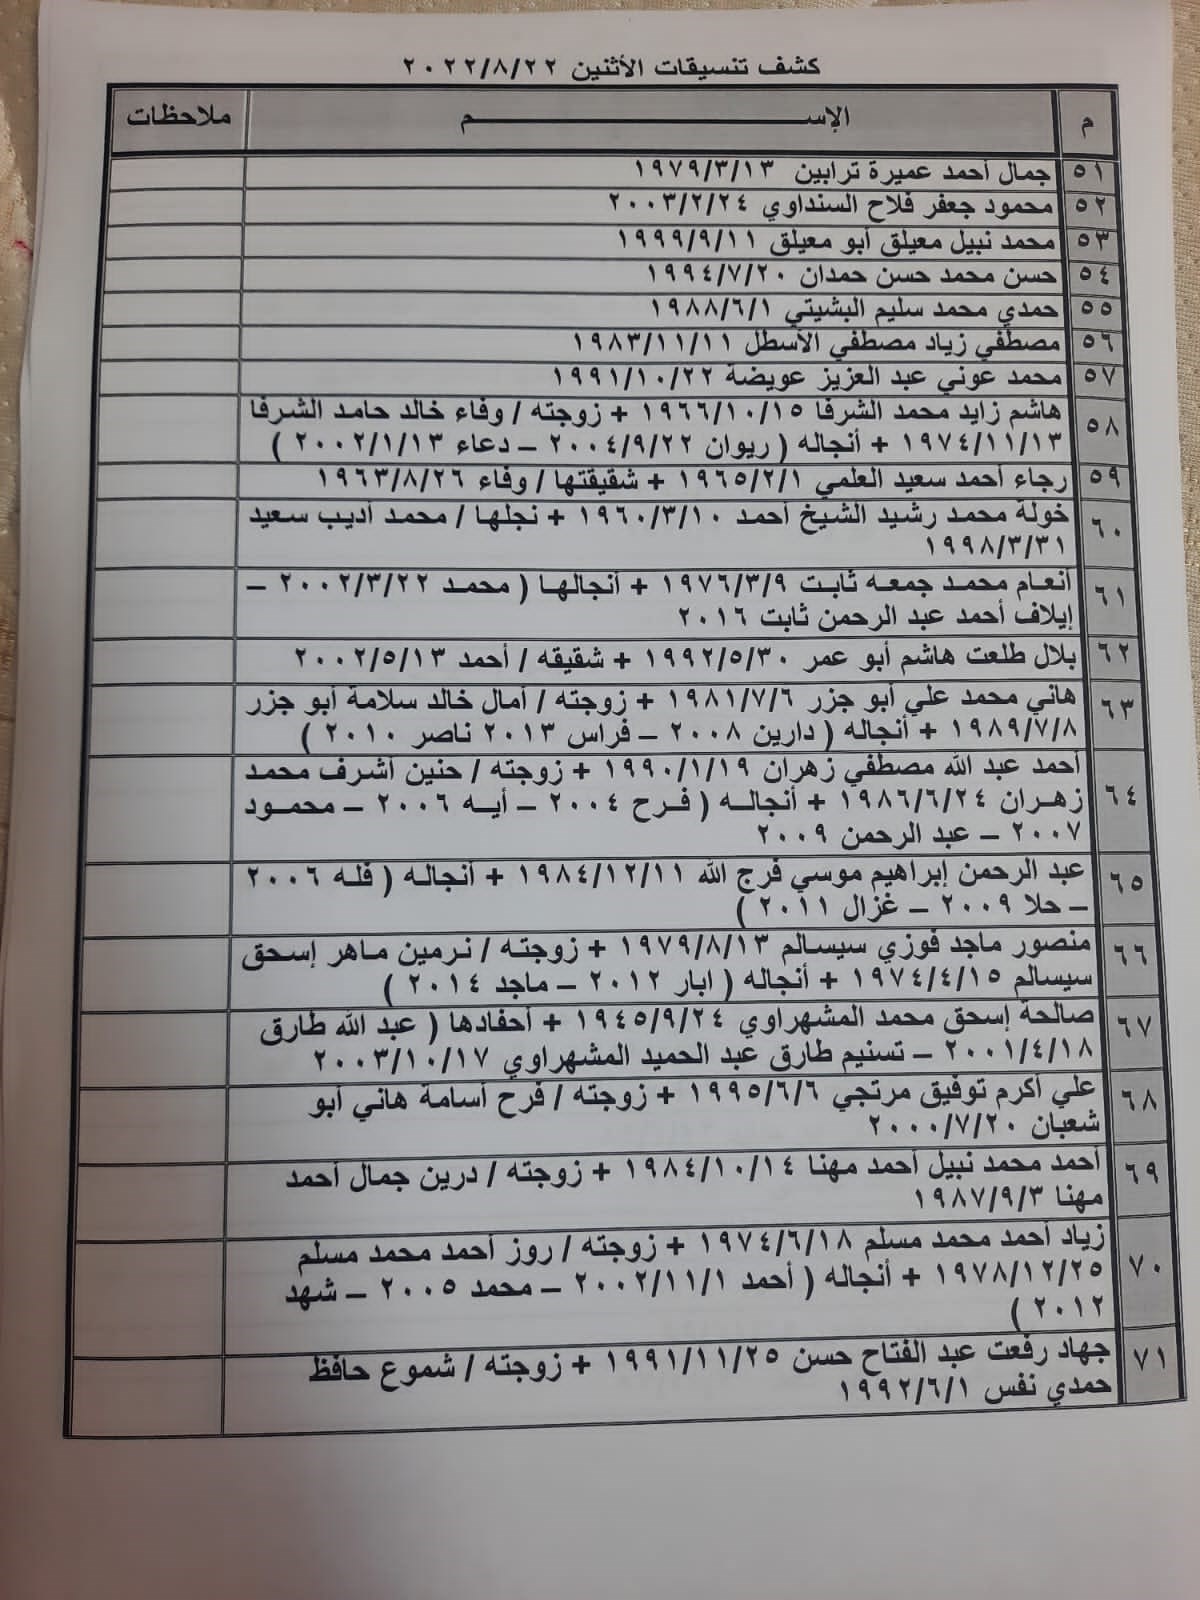 كشف تنسيقات الأثنين ٢٠٢٢/٨/٢٢
م الإســـــــــم ملاحظات
٥١ جمال أحمد عميرة ترابين ١٩٧٩/٣/١٣
٥٢ محمود جعفر فلاح السنداوي ٢٠٠٣/٢/٢٤
٥٣ محمد نبيل معيلق أبو معيلق ١٩٩٩/٩/١١
٥٤ حسن محمد حسن حمدان ١٩٩٤/٧/٢٠
٥٥ حمدي محمد سليم البشيتي ١٩٨٨/٦/١
٥٦ مصطفي زياد مصطفي الأسطل ١٩٨٣/١١/١١
٥٧ محمد عوني عبد العزيز عويضة ١٩٩١/١٠/٢٢
٥٨ هاشم زايد محمد الشرفا ١٩٦٦/١٠/١٥ + زوجته / وفاء خالد حامد الشرفا
١٩٧٤/١١/١٣ + أنجاله ( ريوان ٢٠٠٤/٩/٢٢ – دعاء ٢٠٠٢/١/١٣ )
٥٩ رجاء أحمد سعيد العلمي ١٩٦٥/٢/١ + شقيقتها / وفاء ١٩٦٣/٨/٢٦
٦٠ خولة محمد رشيد الشيخ أحمد ١٩٦٠/٣/١٠ + نجلها / محمد أديب سعيد
١٩٩٨/٣/٣١
٦١ أنعام محمد جمعه ثابت ١٩٧٦/٣/٩ + أنجالها ( محمد ٢٠٠٢/٣/٢٢ –
إيلاف أحمد عبد الرحمن ثابت ٢٠١٦
٦٢ بلال طلعت هاشم أبو عمر ١٩٩٢/٥/٣٠ + شقيقه / أحمد ٢٠٠٢/٥/١٣
٦٣ هاني محمد علي أبو جزر ١٩٨١/٧/٦ + زوجته / أمال خالد سلامة أبو جزر
١٩٨٩/٧/٨ + أنجاله ( دارين ٢٠٠٨ – فراس ٢٠١٣ ناصر ٢٠١٠ )
٦٤ أحمد عبد الله مصطفي زهران ١٩٩٠/١/١٩ + زوجته / حنين أشرف محمد
زهران ١٩٨٦/٦/٢٤ + أنجاله ( فرح ٢٠٠٤ – أيه ٢٠٠٦ – محمود
٢٠٠٧ – عبد الرحمن ٢٠٠٩
٦٥ عبد الرحمن إبراهيم موسي فرج الله ١٩٨٤/١٢/١١ + أنجاله ( فله ٢٠٠٦
– حلا ٢٠٠٩ – غزال ٢٠١١ )
٦٦ منصور ماجد فوزي سيسالم ١٩٧٩/٨/١٣ + زوجته / نرمين ماهر إسحق
سيسالم ١٩٧٤/٤/١٥ + أنجاله ( ابار ٢٠١٢ – ماجد ٢٠١٤ )
٦٧ صالحة إسحق محمد المشهراوي ١٩٤٥/٩/٢٤ + أحفادها ( عبد الله طارق
٢٠٠١/٤/١٨ – تسنيم طارق عبد الحميد المشهراوي ٢٠٠٣/١٠/١٧
٦٨ علي أكرم توفيق مرتجي ١٩٩٥/٦/٦ + زوجته / فرح أسامة هاني أبو
شعبان ٢٠٠٠/٧/٢٠
٦٩ أحمد محمد نبيل أحمد مهنا ١٩٨٤/١٠/١٤ + زوجته / درين جمال أحمد
مهنا ١٩٨٧/٩/٣
٧٠ زياد أحمد محمد مسلم ١٩٧٤/٦/١٨ + زوجته / روز أحمد محمد مسلم
١٩٧٨/١٢/٢٥ + أنجاله ( أحمد ٢٠٠٢/١١/١ – محمد ٢٠٠٥ – شهد
٢٠١٢ )
٧١ جهاد رفعت عبد الفتاح حسن ١٩٩١/١١/٢٥ + زوجته / شموع حافظ
حمدي نفس ١٩٩٢/٦/١